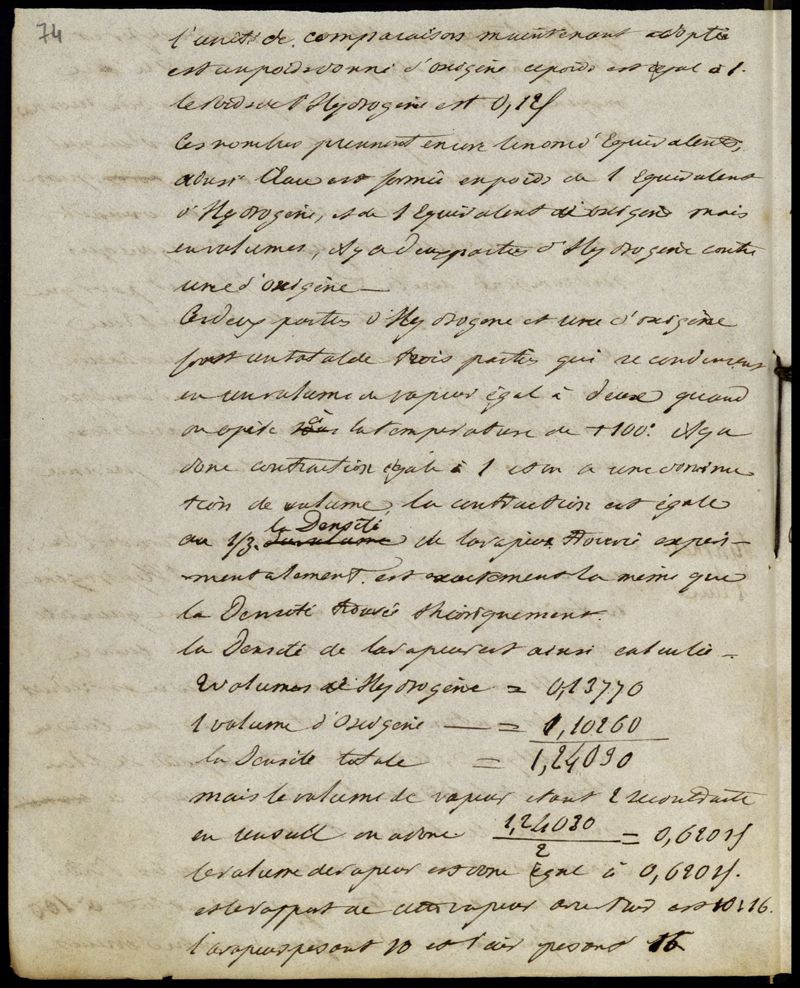 74
l'unité de comparaison maintenant adopté
est un poids donné d'oxigène ce poids est égal à 1.
le Poids de l'Hydrogène est 0,125
Ces nombres prennent encore le nom d'Equivalents,
ainsi l'Eau est formée en poids de 1 Equivalent
d'Hydrogène, et de 1 Equivalent d'oxigène mais
en volumes, il y a deux parties d'Hydrogène contre
une d'oxigène —
Ces deux parties d'Hydrogene et une d'oxigène
font un total de trois parties qui se condensent
en un volume de vapeur égal à deux quand
on opère à la temperature de +100.° il y a
donc contraction égale à 1 et on a une diminu
tion de volume, la contraction est égale
au 1/3. la Densité de la vapeur trouvée experi-
mentalement est exactement la même que
la Densité trouvée théoriquement.
la Densité de la vapeur est ainsi calculée —
2 volumes d'Hydrogène = 0,13770
1 volume d'Oxigène — = 1,10260
la Densité totale = 1,24030
mais le volume de vapeur étant 2 se contracte
en un seul on a donc 1,24030 / 2 = 0,62015
le volume de vapeur est donc égal à 0,62015.
et le rapport de cette vapeur avec l'air est 10 : 16.
la vapeur pesant 10 et l'air pesant 16